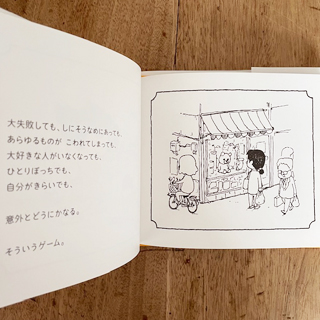 大失敗しても、しにそうなめにあっても、
あらゆるものが こわれてしまっても、
大好きな人がいなくなっても、
ひとりぼっちでも、
自分がきらいでも、
意外とどうにかなる。
そういうゲーム。